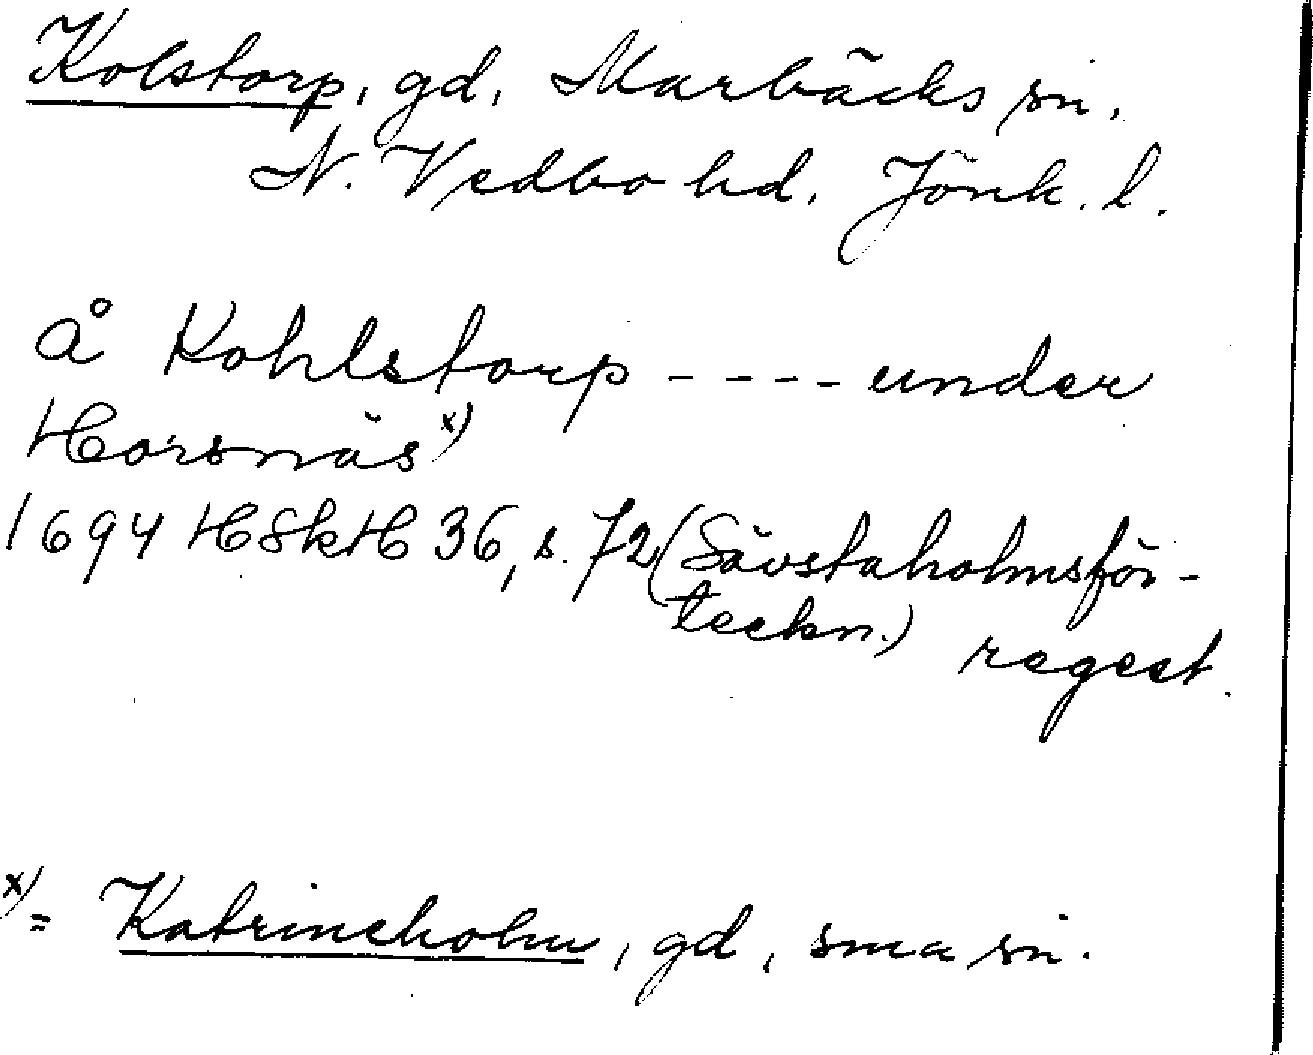 Kolstorp, gd, Marbäcks sn,
N. Vedbo hd, Jönk. l.
å Kohlstorp ---- under
Horsnäs x)
1694 HSkH 36, s. 72 (Sävstaholmsför-
teckn.) regest.
x) = Katrineholm, gd, sma sn.